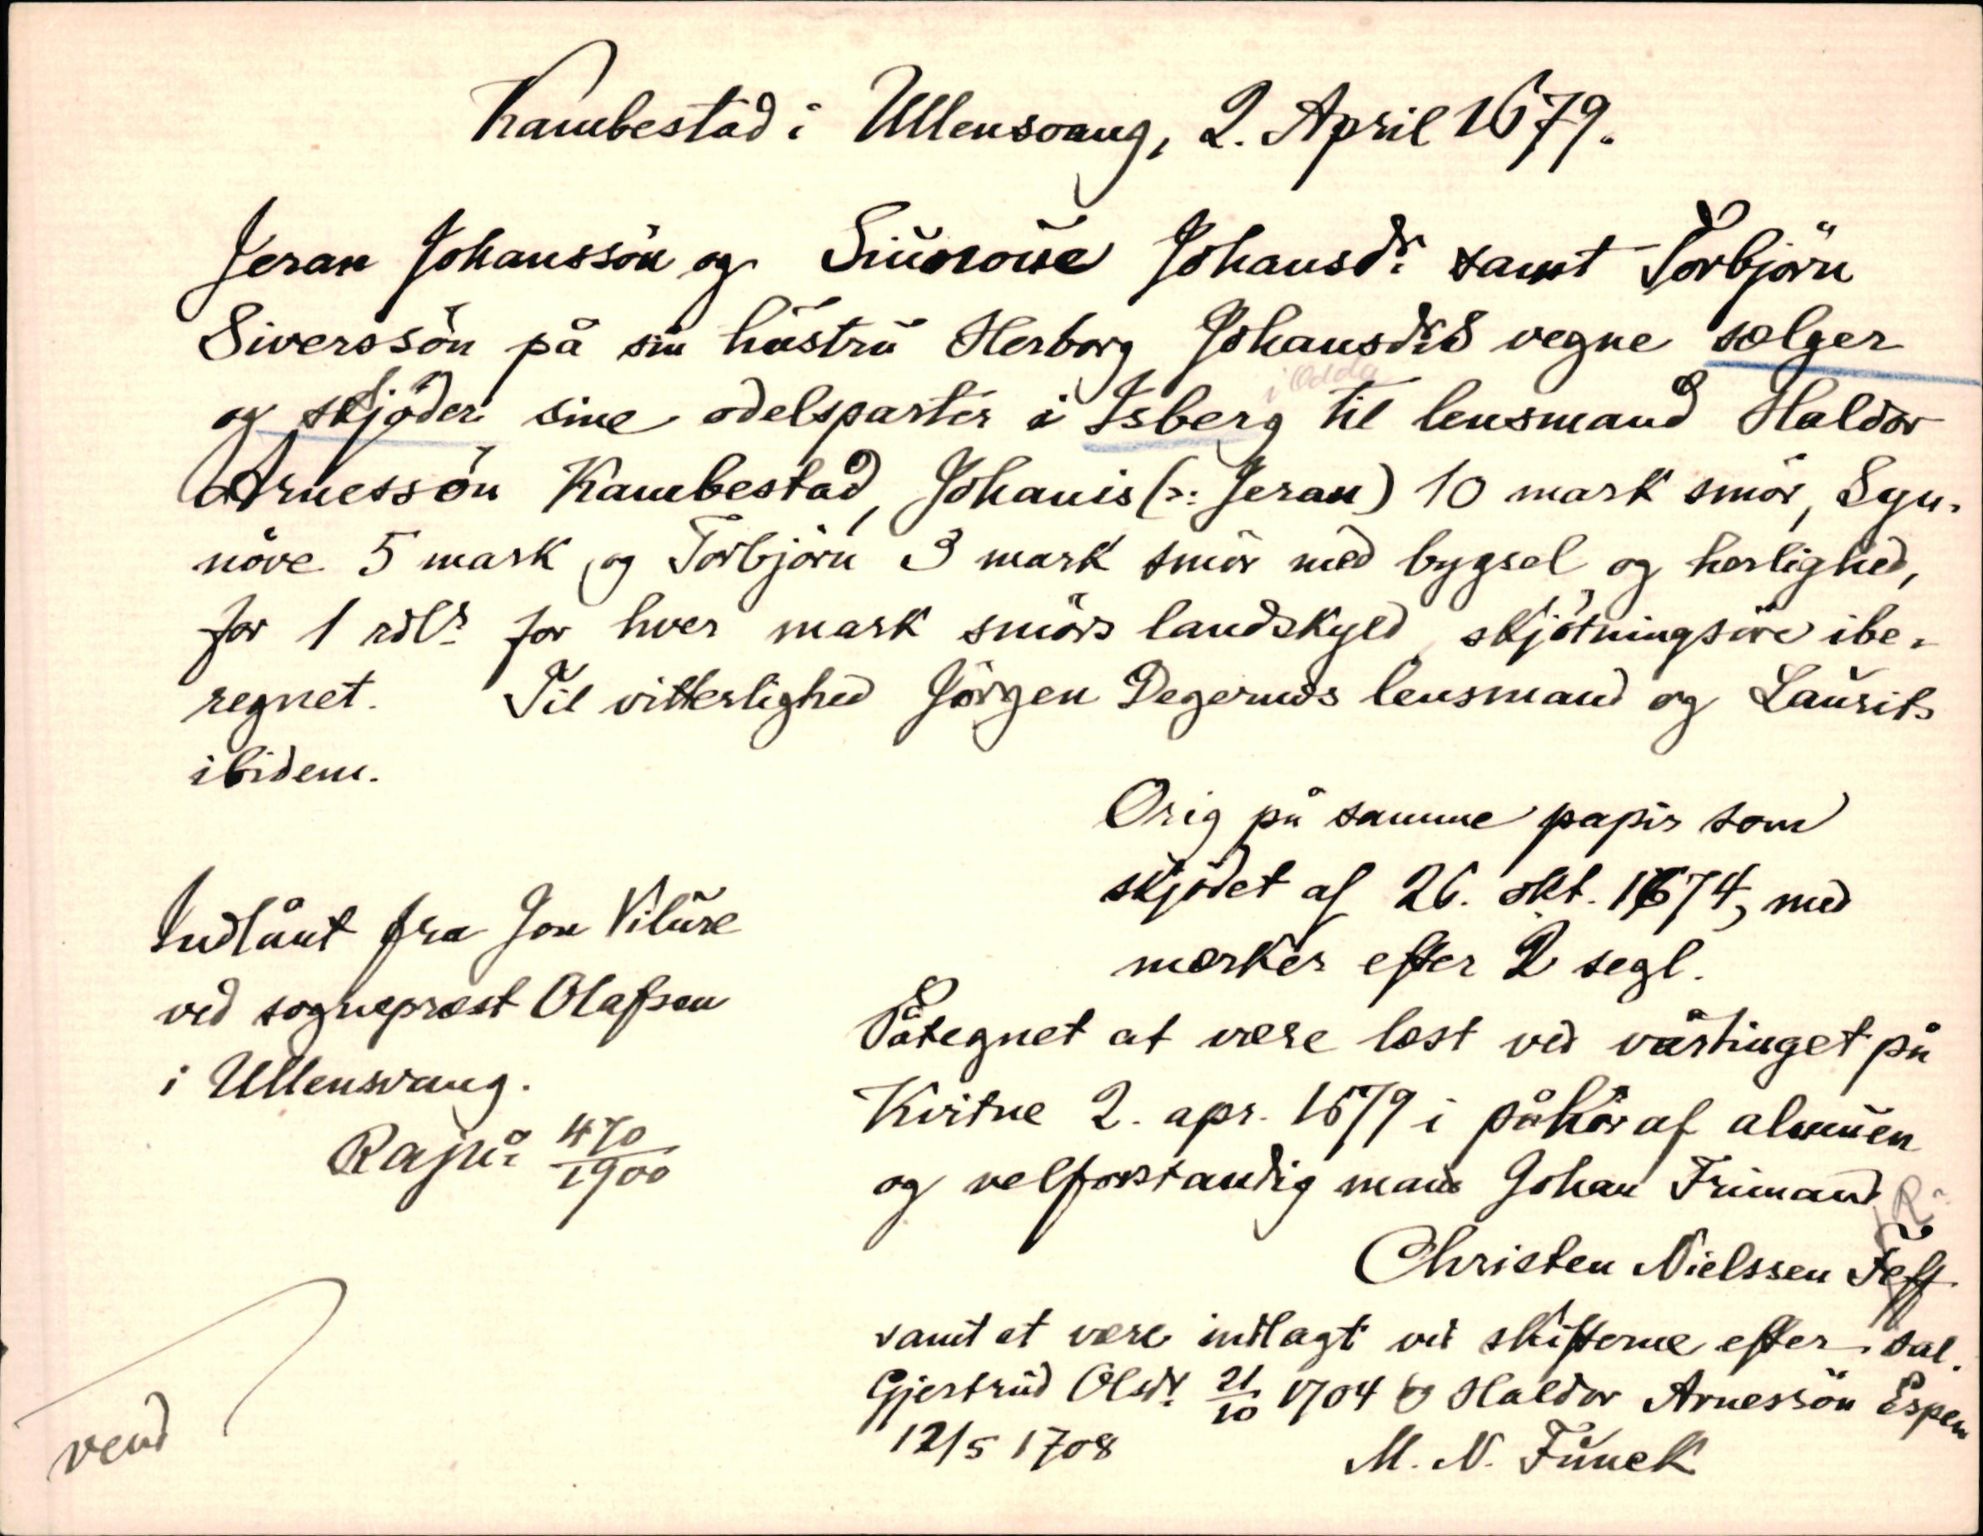 Kambestad i Ullensvang, 2. April 1679.
Jeran Johanssön og Siunoue Johansdr. samt Torbjörn
Siverssön på sin hustru Herborg Johansdrs vegne sælger
i Odda
og skjöder sine odelsparter i Isberg til lensmand Haldor
Arnessön Kambestad, Johanis (ɔ: Jeran) 10 mark smör, Syn-
növe 5 mark og Torbjörn 3 mark smör med bygsel og herlighed,
for 1 rdlr. for hver mark smörs landskyld, skjötningsöre ibe-
regnet. Til vitterlighed Jörgen Degernes lensmand og Laurits
ibidem.
Orig på samme papir som
skjödet af 26. okt. 1674, med
mærker efter 2 segl.
Indlånt fra Jon Vilure
ved sogneprest Olafsen
i Ullensvang.
Rajnr. 470/1900
Påtegnet at være læst ved vårtinget på
Kvitne 2. apr. 1679 i påhör af almuen
og velforstandig mand Johan Frimand
R.
Christen Nielssen Feff
samt at være indlagt ved skifterne efter sal.
Gjertrud Olsdr. 21/10 1704 og Haldor Arnessön Espen
12/5 1708
M. N. Funck
vend